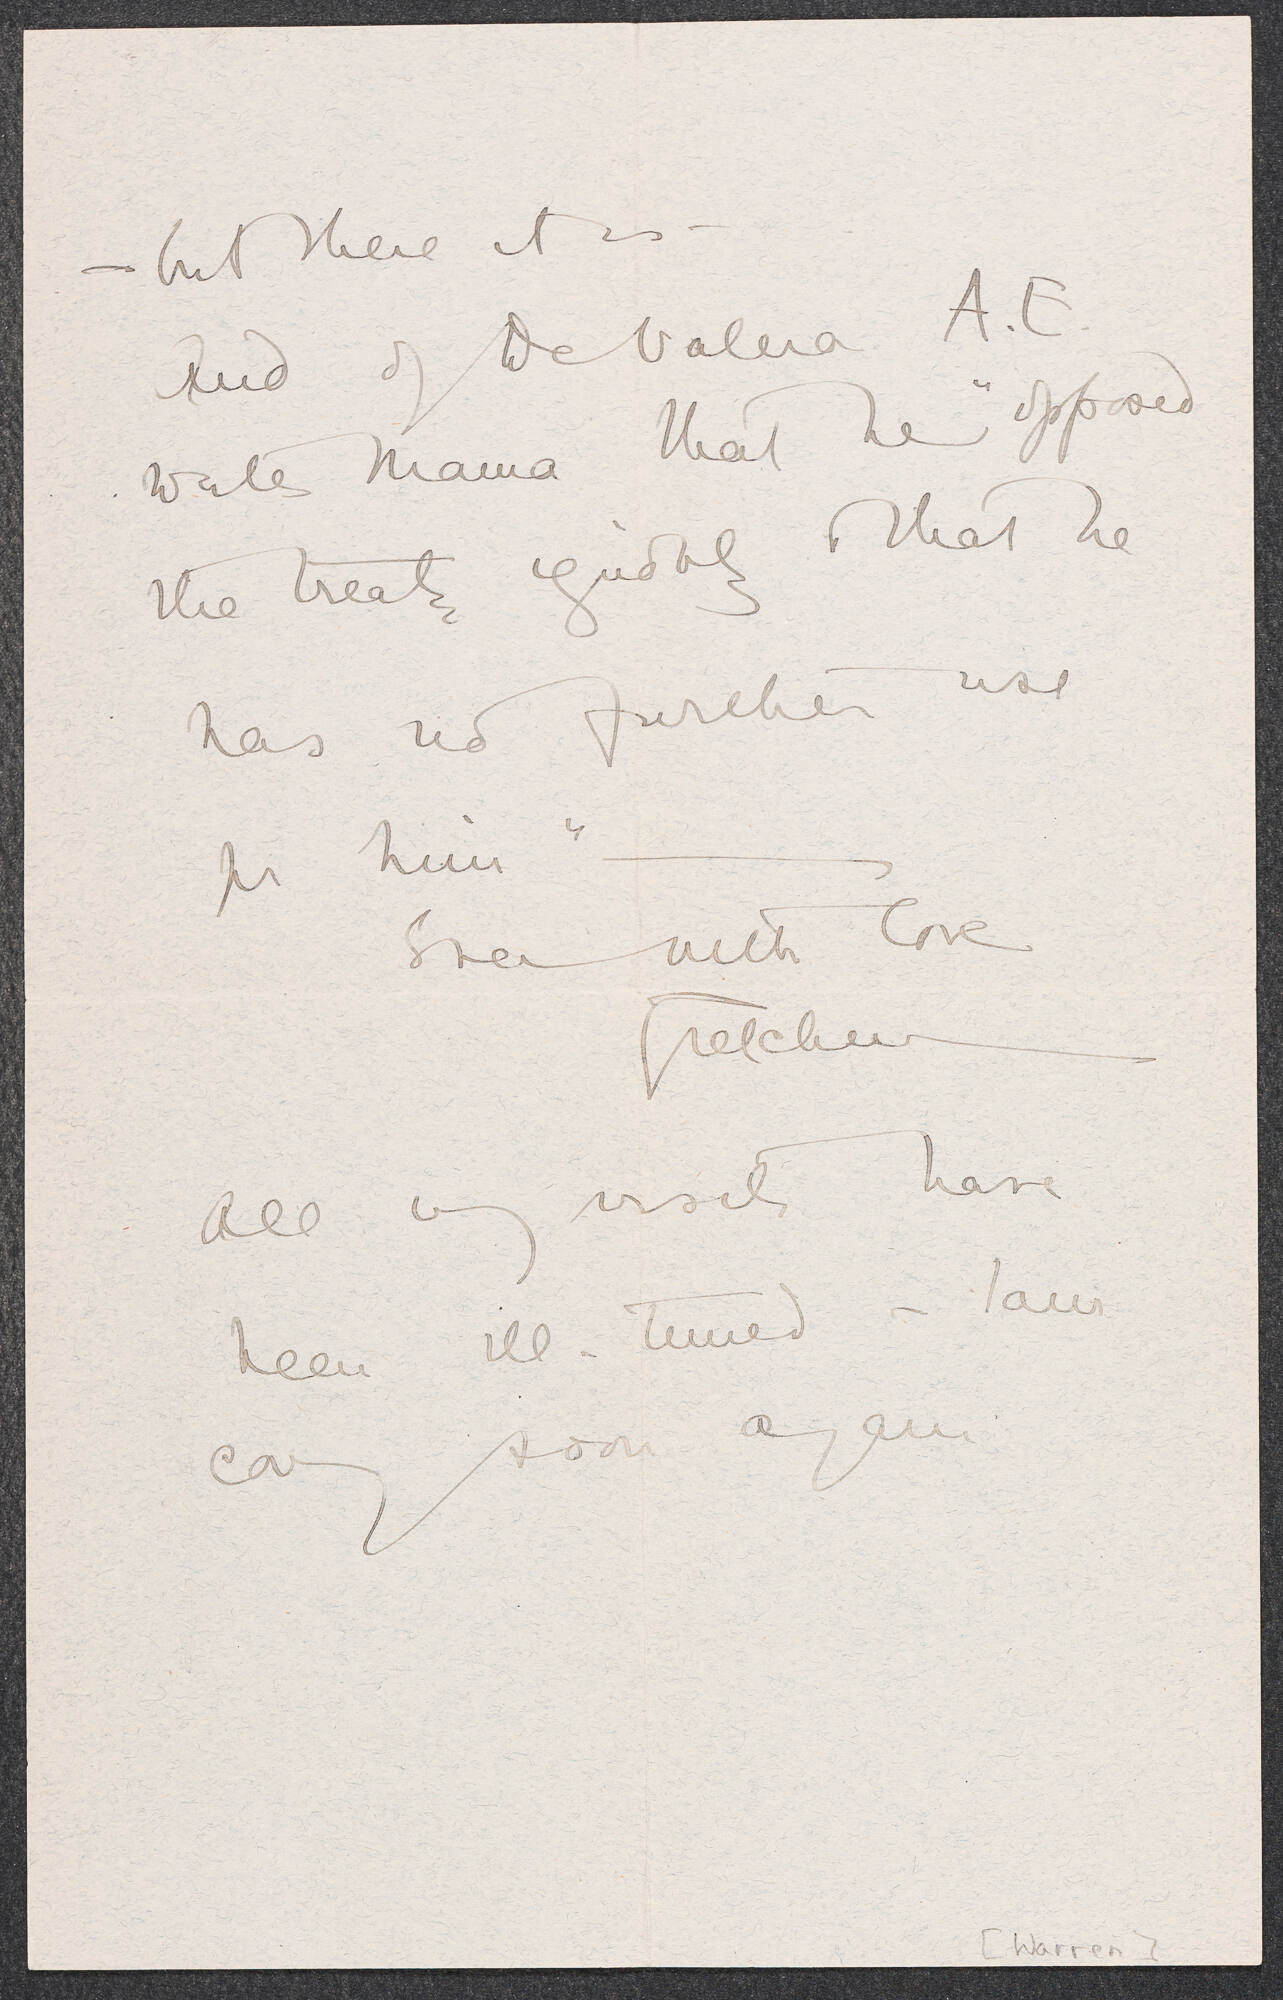 — but there it is —
And of De Valera A.E.
writes Mama that he "opposed
the treaty ignobly & that he
has no further use
for him" —
Ever with love
Gretchen
All my visits have
been ill-timed – I am
coming soon again
[Warren]